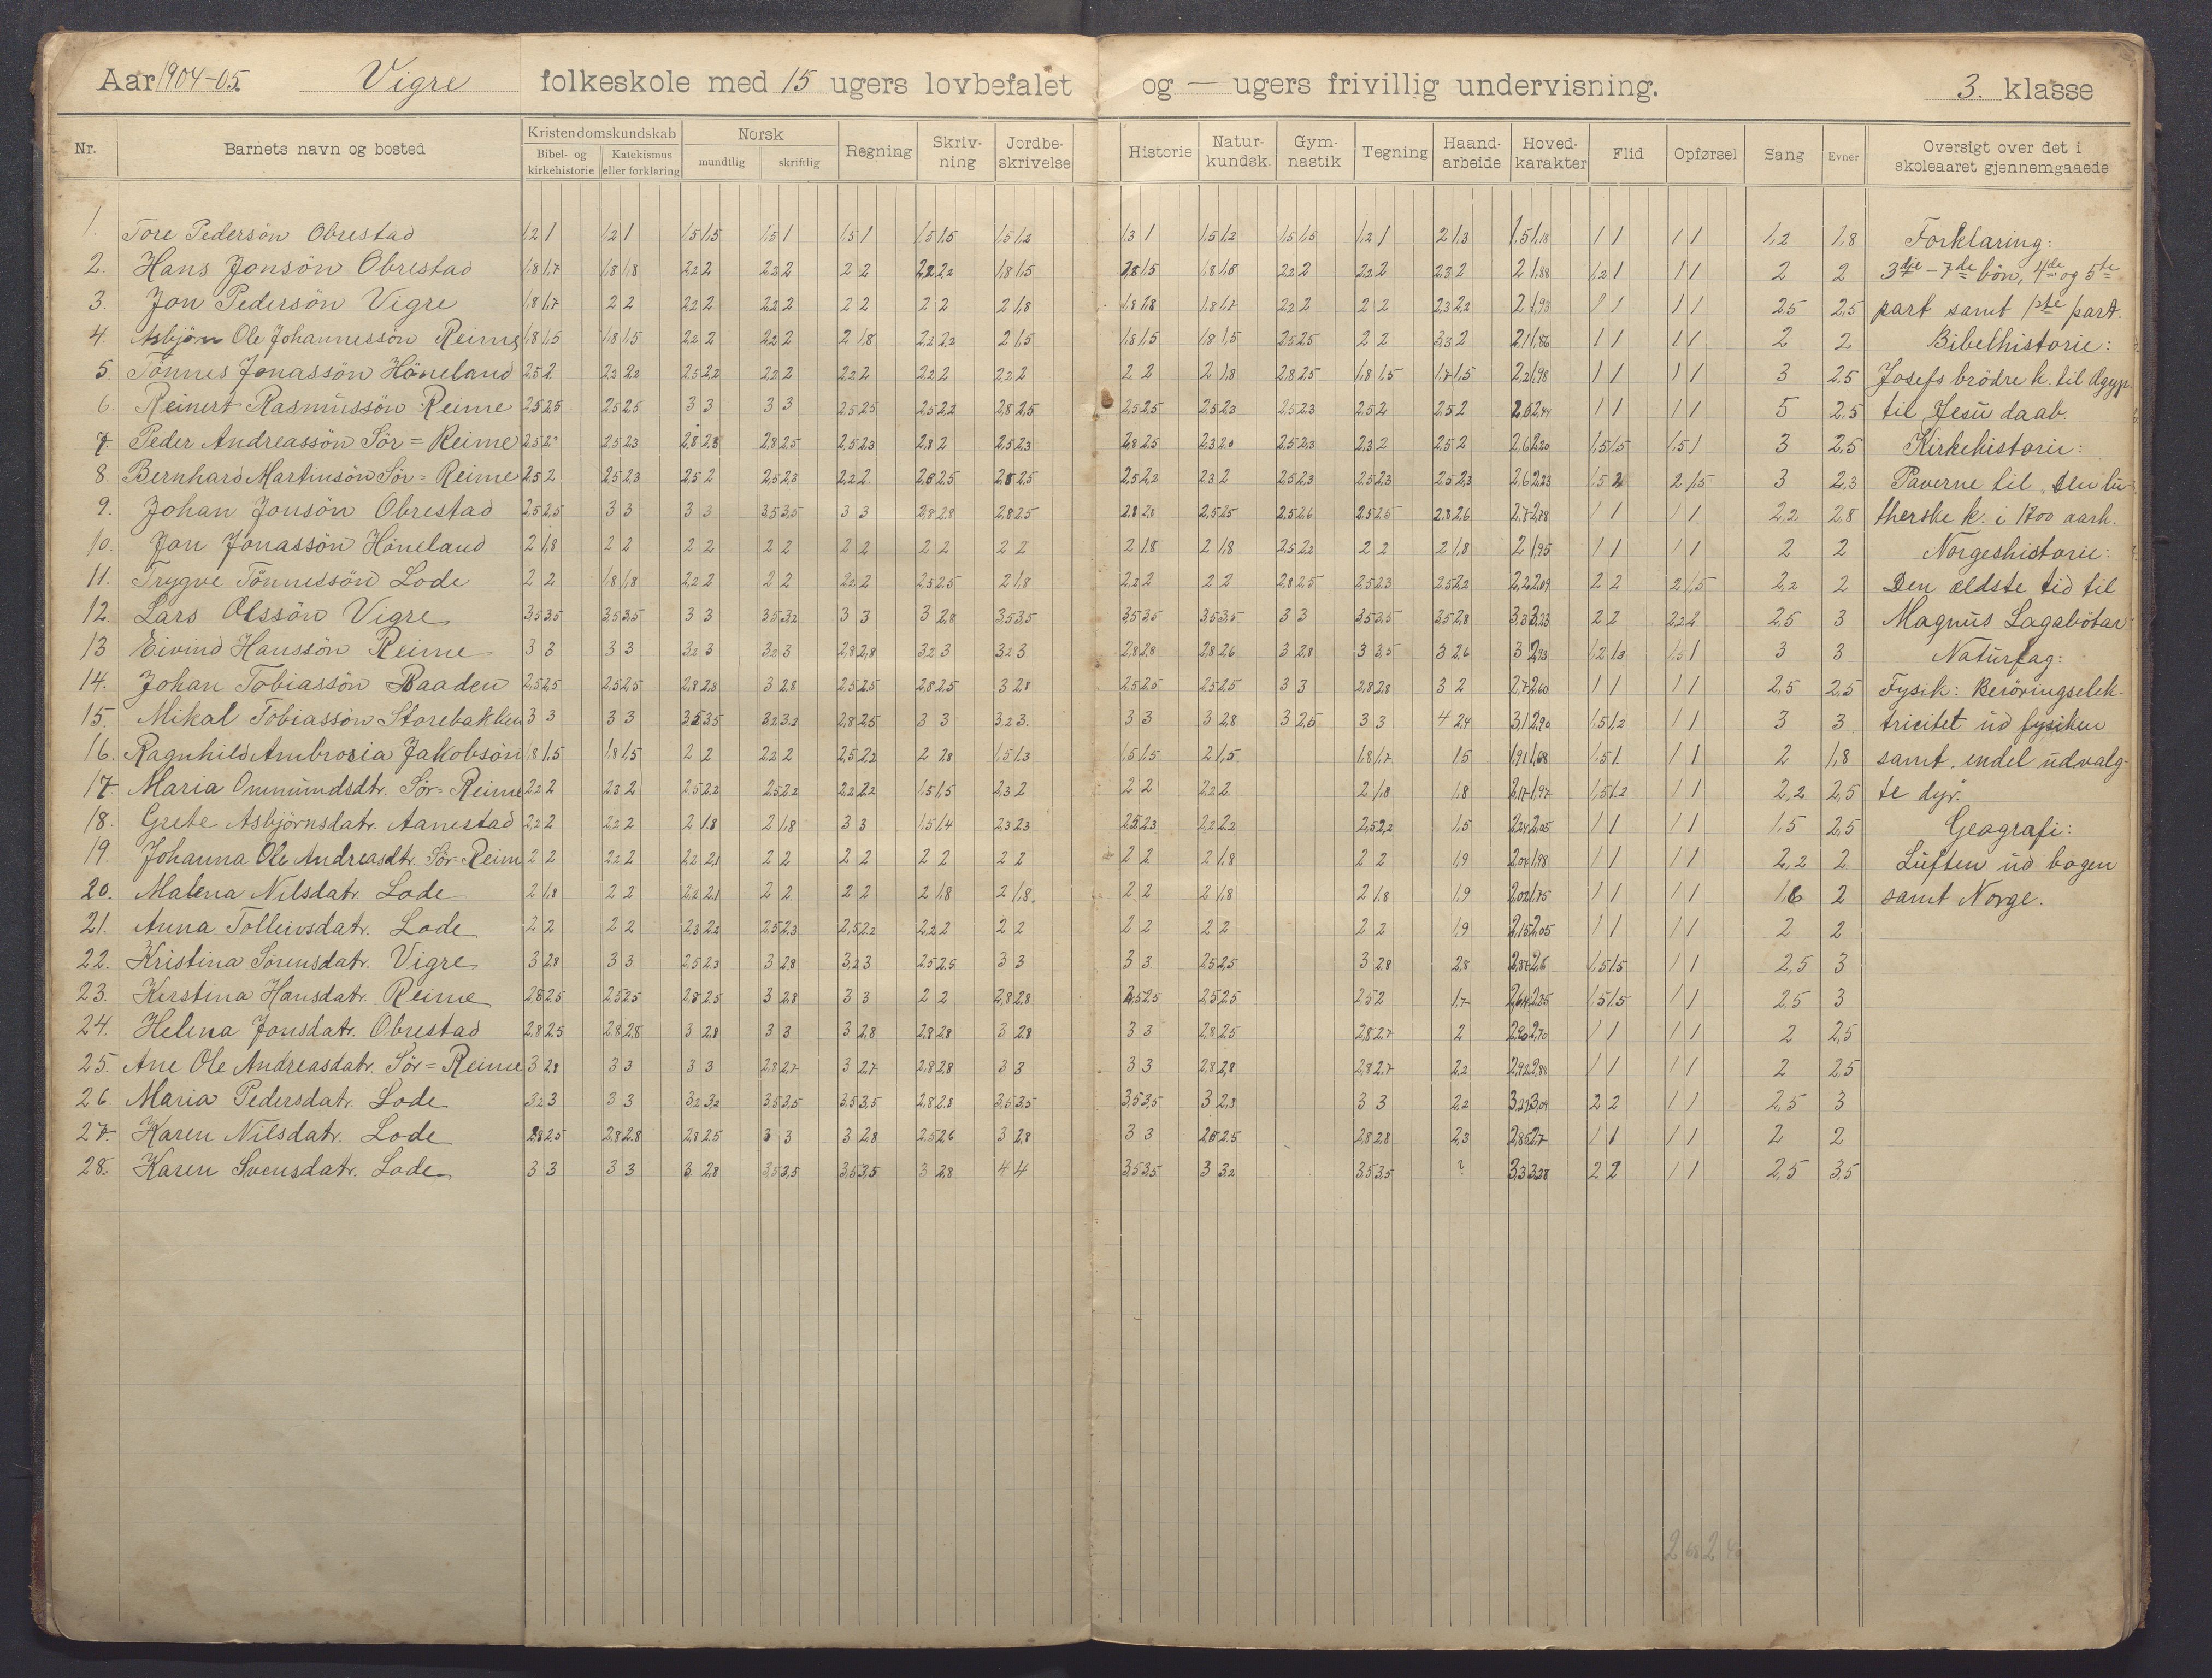 Aar 1904-05. Vigre folkeskole med 15 ugers lovbefalet og — ugers frivillig undervisning. 3. klasse
Nr. Barnets navn og bosted Kristendomskundskab Norsk Regning Skriv-ning Jordbe-skrivelse Historie Natur-kundsk. Gym-nastik Tegning Haand-arbeide Hoved-karakter Flid Opførsel Sang Evner Oversigt over det i skoleaaret gjennemgaaede
Bibel- og kirkehistorie Katekismus eller forklaring mundtlig skriftlig
1. Tore Pedersön Obrestad 1,2 1 1,2 1 1,5 1,5 1,5 1 1,5 1 1,5 1,5 1,5 1,2 1,3 1 1,5 1,2 1,5 1,5 1,2 1 2 1,3 1,5 1,18 1 1 1 1 1,2 1,8 Forklaring:
2. Hans Jonsön Obrestad 1,8 1,7 1,8 1,8 2,2 2 2,2 2 2 2 2,2 2,2 1,8 1,5 1,8 1,5 1,8 1,8 2,2 2 2,2 2 2,3 2 2 1,88 1,2 1 1 1 2 2 3die - 7de bön, 4de og 5te
3. Jon Pedersön Vigre 1,8 1,7 2 2 2,2 2 2,2 2 2 2 2 2 2 1,8 1,8 1,8 1,8 1,7 2,2 2 2 2 2,3 2,2 2 1,93 1 1 1 1 2,5 2,5 part samt 1ste part.
4. Asbjörn Ole Johannessön Reime 1,8 1,5 1,8 1,5 2,2 2 2,2 2 2 1,8 2,2 2,2 2 1,5 1,8 1,5 1,8 1,5 2,5 2,5 2 2 3,3 2 2,1 1,86 1 1 1 1 2 2 Bibelhistorie:
5. Tönnes Jonassön Höneland 2,5 2 2,2 2,2 2,5 2,2 2,2 2 2,2 2 2,2 2 2,2 2 2 2 2 1,8 2,8 2,5 1,8 1,5 1,7 1,5 2,2 1,98 1 1 1 1 3 2,5 Josefs brödre k. til Ægyp.
6. Reinert Rasmussön Reime 2,5 2,5 2,5 2,5 3 3 3 3 2,5 2,5 2,5 2,2 2,8 2,5 2,5 2,5 2,5 2,3 2,5 2,3 2,5 2 2,5 2 1 1 1 1 5 2,5 til Jesu daab.
7. Peder Andreassön Sör=Reime 2,5 2,5 2,3 2,8 2,8 2,8 2,5 2,5 2,3 2,8 2 2,5 2,3 2,8 2,5 2,3 2,0 2,5 2,3 2,3 2 2,5 2 2,6 2,20 1,5 1,5 1,5 1 3 2,5 Kirkehistorie:
8. Bernhard Martinsön Sör=Reime 2,5 2 2,5 2,3 2,5 2 2,5 2,3 2,2 2 2,8 2,5 2,8 2,5 2,5 2,2 2,3 2 2,5 2,3 2,5 2,3 2,5 2,3 2,6 2,23 1,5 2 2 1,5 3 2,3 Paverne til „Den lu-
9. Johan Jonsön Obrestad 2,5 2,5 3 3 3 3 3,5 3,5 3 3 2,8 2,8 2,8 2,5 2,8 2,8 2,5 2,5 2,5 2,6 2,5 2,5 2,8 2,6 2,8 2,78 1 1 1 1 2,2 2,8 therske k. i 1800 aarh.
10. Jon Jonassön Höneland 2 1,8 2 2 2 2 2 2 2 2 2 2 2 2 2 1,8 2 1,8 2,5 2,2 2 2 2 1,8 2 1,95 1 1 1 1 2 2 Norgeshistorie:
11. Trygve Tönnessön Lode 2 2 1,8 1,8 2,2 2 2 2 2,2 2 2,5 2,5 2 1,8 2,2 2 2 2 2,8 2,5 2,5 2,3 2,5 2,2 2,2 2,09 2 2 2 1,5 2,2 2 Den ældste tid til
12. Lars Olssön Vigre 3,5 3,5 3,5 3,5 3 3 3,5 3,2 3 3 3 2,8 3,5 3,5 3,5 3,5 3,5 3,5 3 3 3,5 3,5 3,5 2,8 3,3 3,23 2 2 2,2 2 2,5 3 Magnus Lagaböter
13 Eivind Hanssön Reime 3 3 3 3 3,2 3 3,2 3 2,8 2,8 3,2 3 3,2 3 2,8 2,8 2,8 2,6 3 2,8 3 3,5 3 2,6 3 2,93 1,2 1,3 1,5 1 3 3 Naturfag:
14. Johan Tobiassön Raaden 2,5 2,5 2,5 2,5 2,8 2,8 3 2,8 2,5 2,5 2,8 2,5 3 2,8 2,5 2,5 2,5 2,5 3 3 2,8 2,8 3 2 2,7 2,60 1 1 1 1 2,5 2,5 Fysik: Beröringselek-
15. Mikal Tobiassön Storebakken 3 3 3 3 3,5 3,5 3,2 3,2 2,8 2,5 3 3 3,2 3 3 3 3 2,8 3 2,5 3 3 4 2,4 3,1 2,90 1,5 1,2 1 1 3 3 tricitet ud fysiken
16. Ragnhild Ambrosia Jakobsön 1,8 1,5 1,8 1,5 2 2 2,2 2 2,5 2,2 2 2,8 1,5 1,3 1,5 1,5 2 1,5 1,8 1,7 1,5 1,91 1,68 1,5 1 1 1 2 1,8 samt endel udvalg-
17. Maria Ommundsdtr. Sör=Reime 2,2 2 2,3 2 2,5 2,2 2,5 2,2 2,2 2,2 1,5 1,5 2,3 2 2 2 2,2 2 2 1,8 1,8 2,17 1,97 1,5 1,2 1 1 2,2 2,5 te dyr.
18. Grete Asbjörnsdatr. Aanestad 2,2 2 2,2 2 2 1,8 2 1,8 3 3 1,5 1,4 2,3 2,3 2,5 2,3 2,2 2,2 2,5 2,2 1,5 2,24 2,05 1 1 1 1 1,5 2,5 Geografi:
19. Johanna Ole Andreasdtr. Sör=Reim 2 2 2,2 2 2,2 2,1 2 2 2 2 2 2 2 2 2 2 2 1,8 2 2 1,9 2,04 1,98 1 1 1 1 2,2 2 Luften ud bogen
20. Malena Nilsdatr. Lode 2 1,8 2 2 2,2 2,1 2 2 2 2 2 1,8 2 1,8 2 2 2 1,8 2 1,8 1,9 2,02 1,75 1 1 1 1 1,6 2 samt Norge.
21. Anna Tolleivsdatr. Lode 2 2 2 2 2,3 2,2 2,5 2,3 2,5 2,2 2,2 2 2 2 2 2 2 2 2 2 1,9 2,15 2,05 1 1 1 1 2 2
22. Kristina Sörensdatr. Vigre 3 2,8 3 3 2,5 2,3 3 2,8 3,2 3 2,5 2,5 3 3 3 3 2,5 2,5 3 2,8 2,8 2,87 2,6 1,5 1,5 1 1 2,5 3
23. Kirstina Hansdatr. Reime 2,8 2,5 2,5 2,5 2,8 2,5 3 2,8 3 3 2 2 2,8 2,8 2,5 2,5 2,5 2,5 2,5 2 1,7 2,64 2,25 1,5 1,5 1 1 2,5 3
24. Helena Jonsdatr. Obrestad 2,8 2,5 2,8 2,8 3 2,8 3 3 3 2,8 2,8 2,8 3 2,8 3 3 2,8 2,5 2,8 2,7 2 2,90 2,70 1 1 1 1 2 2,5
25. Ane Ole Andreasdatr. Sör=Reime 3 2,8 3 3 3 3 2,8 2,7 3 2,7 2,8 2,8 3 3 3 3 2,8 2,8 2,8 2,7 2,2 2,92 2,84 1 1 1 1 2 2,5
26. Maria Pedersdatr. Lode 3,2 3 3 3 3,2 3,2 3,5 3,5 3,5 3,5 2,8 2,8 3,5 3,5 3,5 3,5 3 2,8 3 3 2,2 3,27 3,09 2 2 1 1 2,5 3
27. Karen Nilsdatr. Lode 2,8 2,5 2,8 2,8 2,8 2,5 3 3 3 2,8 2,5 2,6 3 2,8 3 3 2,8 2,5 2,8 2,8 2,3 2,85 2,7 1 1 1 1 2 2
28. Karen Svensdatr. Lode 3 3 3 3 3 2,8 3,5 3,5 3,5 3,5 3 2,8 4 4 3,5 3,5 3 3,2 3,5 3,5 ? 3,3 3,28 2 2 1 1 2,5 3,5